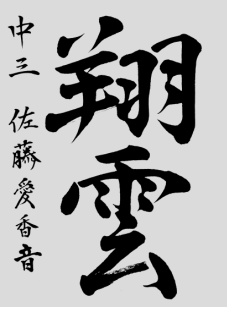 翔雲
中三 佐藤愛香音